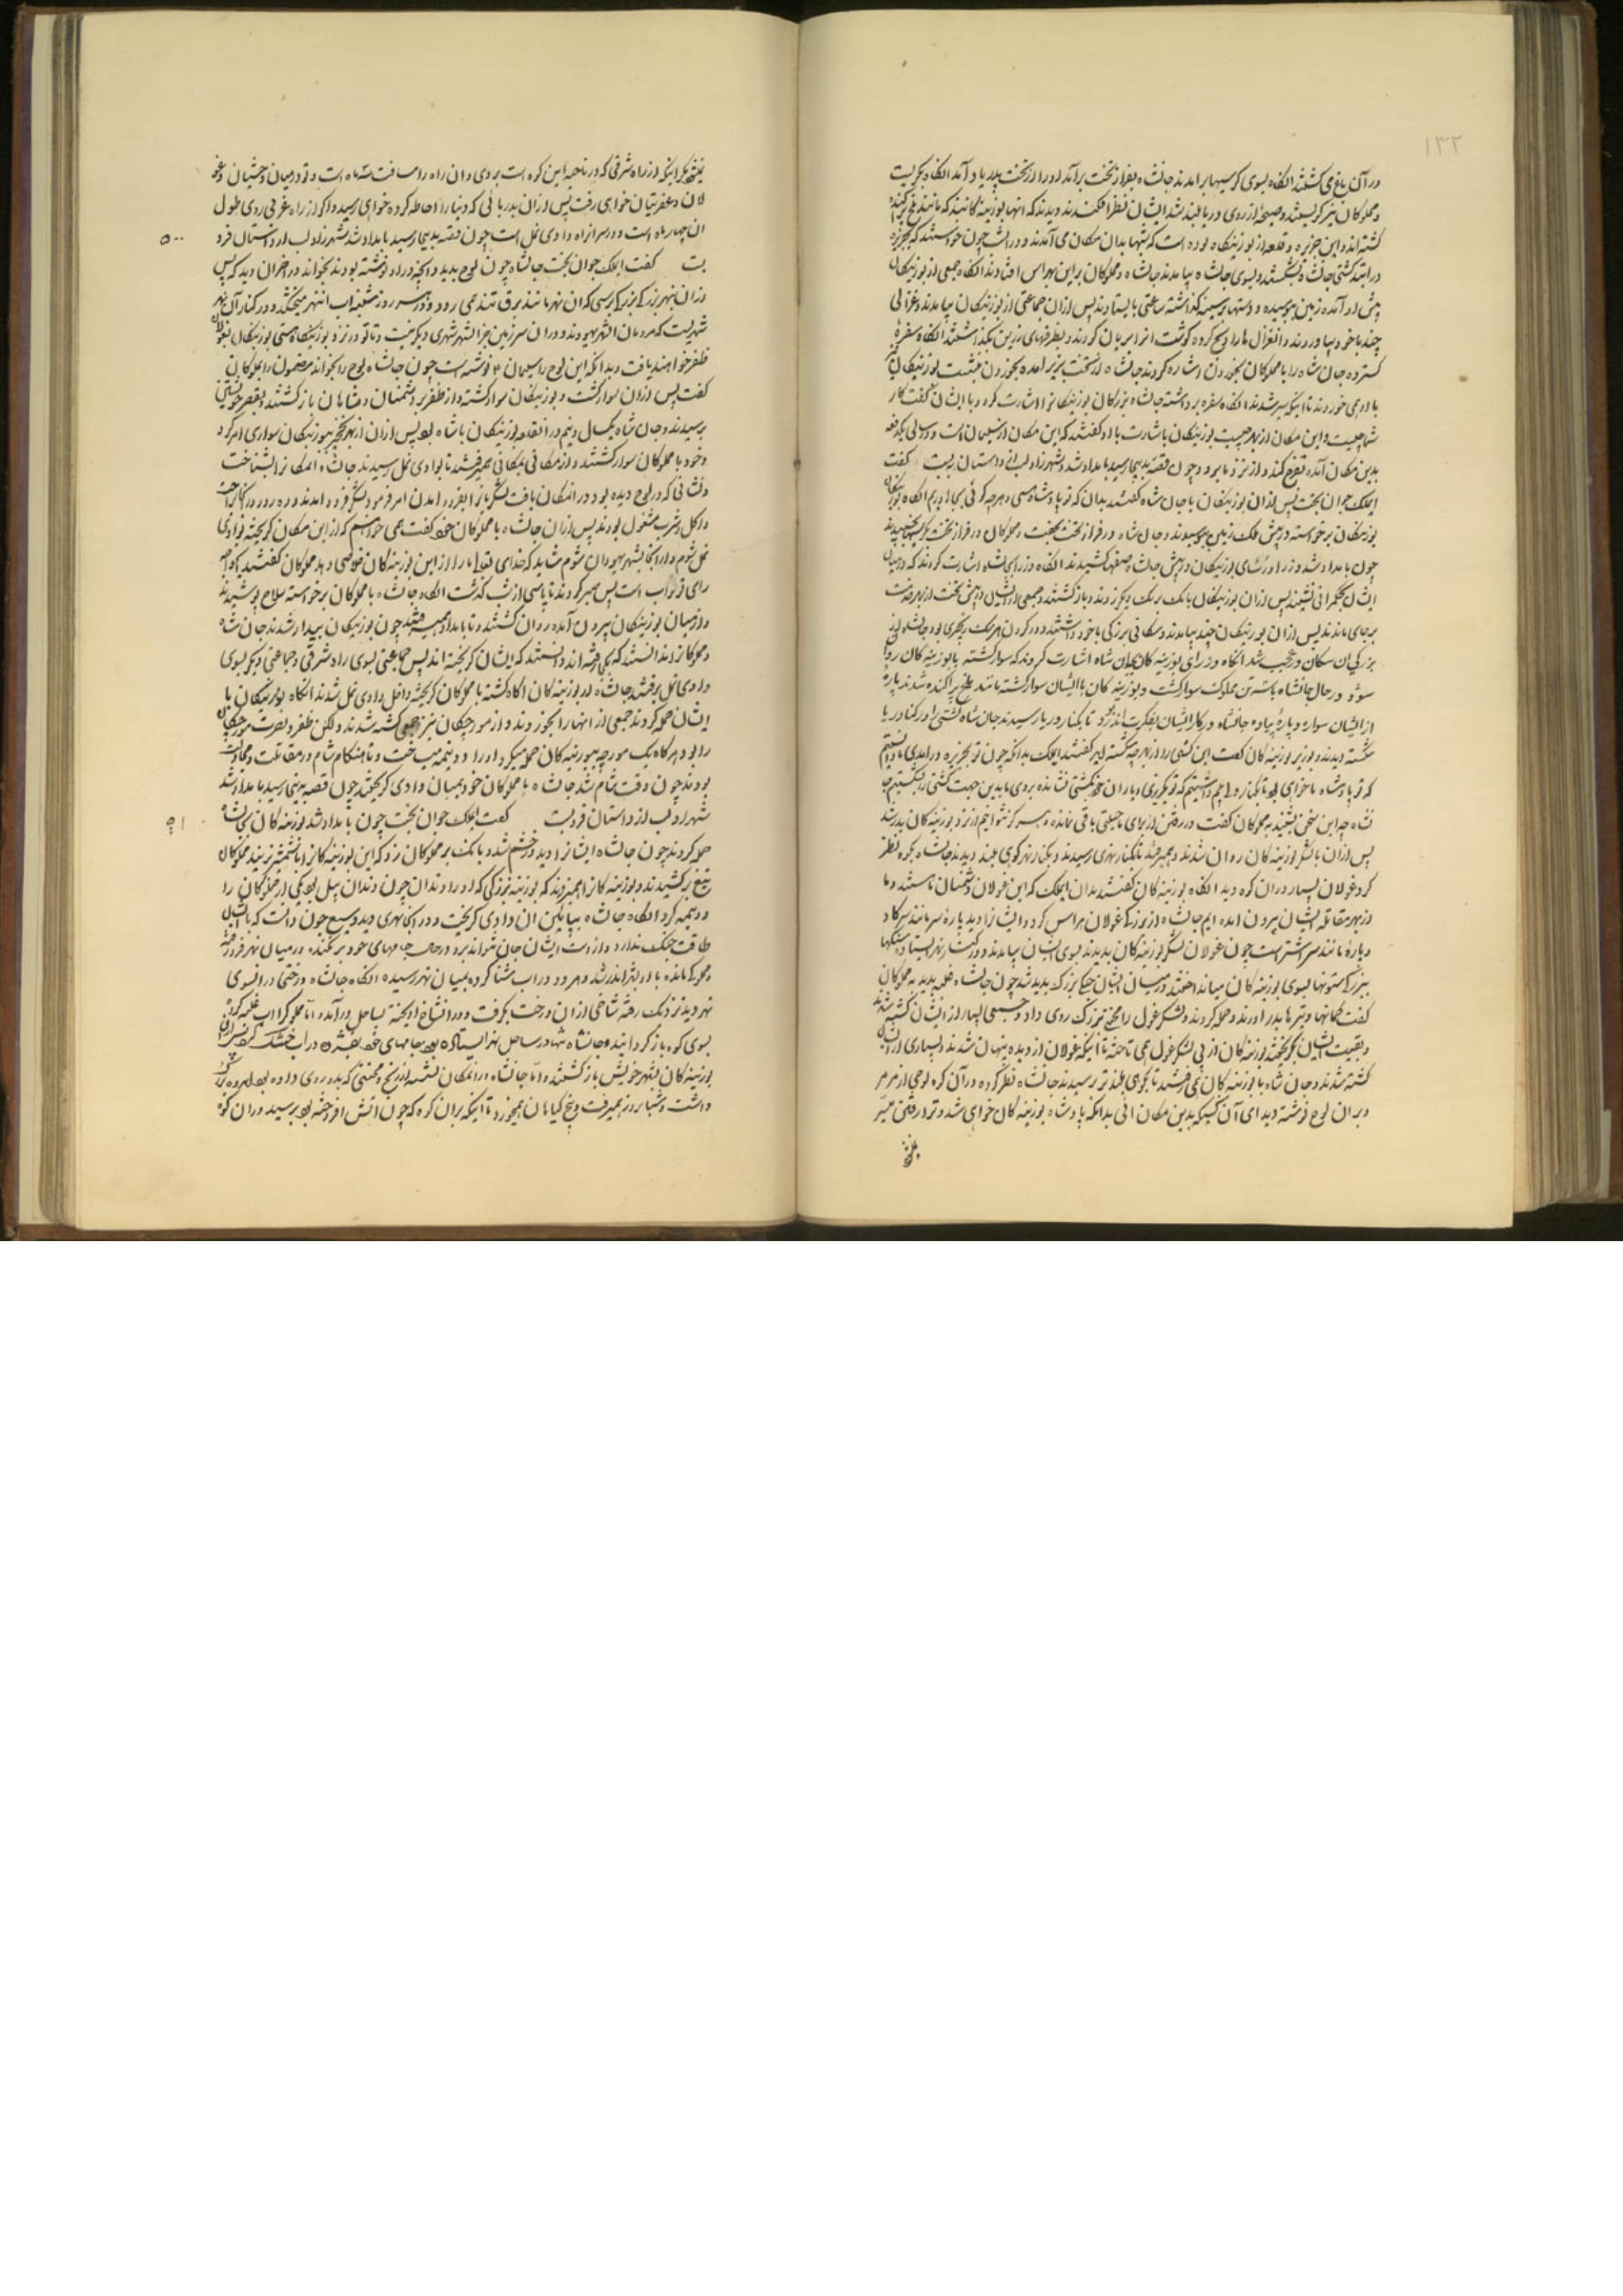 ۱۳۲
در آن باغ می کشتند انکاه بسوی کرسیها برامدند جانشاه بفراز تخت برآمد او را از تخت پدر یاد آمد انکاه بکریست
و مملوکان نیز کریستند و صیحۀ از روی دریا بلند شد ایشان نظر افکندند دیدند که انها بوزینه کانند که مانند ملخ پراکنده
کشته اند و این جزیره و قلعه از بوزینکان بوده است که شبها بدان مکان می آمدند و در انشب چون خواستند که بجزیره
درایند کشتی جانشاه بشکستند و بسوی جانشاه بیامدند جانشاه و مملوکان بر این بهراس افتادند انکاه جمعی از بوزینکان
پیش او آمده زمین ببوسیده و دستها بر سینه کذاشته ساعتی بایستادند پس ازان جماعتی از بوزینکان بیامدند و غزالی
چند با خود بیاوردند و انغزال ها را ذبح کرده کوشت انرا بریان کردند و بظرفهای زرین بکذاشتند انکاه سفرۀ
کسترده جان شاه را با مملوکان بخوردن اشاره کردند جانشاه از تخت بزیر امده بخوردن بنشست بوزنیکان نیز
با او می خوردند تا اینکه سیر شدند انکاه سفره برداشته جانشاه بزرکان بوزینکانرا اشارت کرد و با ایشان کفت کار
شما چیست و این مکان از بهر چیست بوزنیکان باشارت با او کفتند که این مکان از سلیمان است و در سالی یکدفعه
بدین مکان آمده تفرج کند و از نزد ما برود چون قصه بدینجا رسید بامداد شد و شهرزاد لب از داستان بربست کفت
ایملک جوان بخت پس ازان بوزینکان با جان شاه کفتند بدان که تو پادشاه مائی و هر چه کوئی بجا اوریم انکاه بوزنیکان
بوزنیکان برخواسته در پیش ملک زمین ببوسیدند و جان شاه در فراز تخت بخفت و مملوکان در فراز تخت کرسیها بخسبیدند
چون بامداد شد وزرا و رئسای بوزنیکان در پیش جانشاه صفها کشیدند انکاه وزرا بجانشاه اشارت کردند که در میان
ایشان بحکمرانی نشیند پس ازان بوزینکان بانک بر یک دیکر زدند و باز کشتند و جمعی از ایشان در پیش تخت از بهر خدمت
برجای ماندند پس از ان بوزنیکان چند بیامدند و سکانی بزرکی با خود داشتند و در کردن هر یک زنجیری بود جانشاه از
بزرکی ان سکان در عجب شد انکاه وزرای بوزینه کان بجان شاه اشارت کردند که سوار کشته با بوزینه کان روان
شود در حال جانشاه با سه تن مملوک سوار کشت و بوزینه کان با ایشان سوار کشته مانند ملخ پراکنده شدند پارۀ
از ایشان سواره و پارۀ پیاده جانشاه در کار ایشان بفکرت اندر بود تا بکنار دریا رسیدند جان شاه کشتی را در کنار دریا
شکسته دیدند و بوزیر بوزینه کان کفت این کشتی را از بهر چه شکسته اید کفتند ایملک بدانکه چون تو بجزیره درامدی ما دانستیم
که تو پادشاه ما خواهی بود
شاه چون این سخن بشنید به مملوکان کفت در رفتن از برای ما حیلتی باقی نمانده و هرکز نتوانیم از نزد بوزینه کان بدر شد
پس ازان با لشکر بوزینه کان روان شدند و همیرفتند تا بکنار نهری رسیدند و بکنار نهر کوهی بلند دیدند جانشاه بکوه نظر
کرد غولان بسیار دران کوه دید انکاه بوزینه کان کفتند بدان ایملک که این غولان دشمنان ما هستند و ما
از بهر مقاتله ایشان بیرون امده ایم جانشاه از بزرکی غولان هراس کرد و ایشانرا دید پارۀ سر مانند سر کاو
و پارۀ مانند سر اشتر است چون غولان لشکر بوزینه کان بدیدند بسوی ایشان بیامدند و در کنار نهر ایستاده سنکها
ببزرکی ستونها بسوی بوزینه کان میانداختند و در میان ایشان جنکی بزرک پدید شد چون جانشاه غلبه بدید به مملوکان
کفت کمانها و تیرها بدر اورند و حمله کردند و لشکر غول را رنجی بزرک روی داد و جمعی بسیار از ایشان کشته شدند
و بقیت ایشان بکریختند بوزینه کان از پی لشکر غول می تاختند تا اینکه غولان از دیده پنهان شدند و بسیاری از ایشان
کشته شدند و جان شاه با بوزینه کان می رفتند تا بکوهی بلندتر برسیدند جانشاه نظر کرده در آن کوه لوحی از مرمر
دید و بران لوح نوشته دید ای آن کسیکه بدین مکان ائی بدانکه پادشاه بوزینه کان خواهی شد و ترا رفتن میسر
نمیشود مکر اینکه از راه شرقی که در ناحیه این کوه است بروی و ان راه را مسافت سه ماه است و تو در میان وحشیان و غو
لان و عفریتیان خواهی رفت پس ازان بدریائی که دنیا را احاطه کرده خواهی رسید و اکر از راه غربی روی طول
ان چهار ماه است و در سر انراه وادی نمل است چون قصه بدینجا رسید بامداد شد شهرزاد لب از داستان فرو
۵۰۰
بست کفت ایملک جوان بخت جانشاه چون لوح بدید و انچه در او نوشته بودند بخواند در اخران دید که پس
ازان بنهر بزرک برسی که ان نهر مانند برق تند همی رود و در هر روز شنبه اب اننهر میخشکد و در کنار آن نهر
شهریست که مردمان انشهر یهودند و دران سرزمین جز انشهر شهری دیکر نیست و تا تو در نزد بوزینکان هستی بوزینکان بغولان
ظفر خواهند یافت و بدانکه این لوح را سلیمان ع نوشته است چون جانشاه لوح را بخواند مضمون را بمملوکان
کفت پس ازان سوار کشت و بوزینکان سوار کشته و از ظفر بر دشمنان شادمان باز کشتند و بقصر خویشتن
برسیدند و جان شاه یکسال و نیم در انقلعه بوزنیکان پادشاه بود پس ازان از بهر نخجیر ببوزنیکان سواری امر کرد
و خود با مملوکان سوار کشتند و از مکانی بمکانی همیرفتند تا بوادی نمل رسیدند جانشاه انمکانرا بشناخت
و نشانی که در لوح دیده بود در انمکان بیافت لشکریانرا بفرود امدن امر فرمود لشکر فرود امدند و ده روز در انجا راحت
و اکل و شرب مشغول بودند پس ازان جانشاه با مملوکان خود کفت همی خواهم که ازاین مکان کریخته بوادی
نمل شوم و از انجا بشهر یهودان شوم شاید که خدای تعالی ما را ازاین بوزینه کان خلاصی دهد مملوکان کفتند نیکو رای
رای تو صواب است پس صبر کردند تا پاسی از شب کذشت انکاه جانشاه با مملوکان برخواسته سلاح پوشیدند
و از میان بوزنیکان بیرون آمده روان کشتند و تا بامداد همیرفتند چون بوزنیکان بیدار شدند جان شاه
و مملوکانرا ندانستند که کجا رفته اند دانستند که ایشان کریخته اند پس جماعتی بسوی راه شرقی و جماعتی دیکر بسوی
وادی نمل برفتند
ایشان حمله کردند جمعی از انها را بخوردند و از مورچکان نیز جمعی کشته شدند ولکن ظفر و نصرت مورچکان
را بود هرکاه یک مورچه ببوزینه کان حمله میکرد او را دو نیمه میساخت و تا هنکام شام در مقاتلت و مجادلت
بودند چون وقت شام شد جانشاه با مملوکان خود بمیان وادی کریختند چون قصه بدینجا رسید بامداد شد
شهرزاد لب از داستان فروبست کفت ایملک جوان بخت چون بامداد شد بوزینه کان بجانشاه
حمله کردند چون جانشاه ایشانرا دید در خشم شد و بانک بر مملوکان زد که این بوزینه کانرا با شمشیر بزنید مملوکان
تیغ برکشیدند و بوزینه کانرا همیزدند که بوزینه بزرکی که او را دندان چون دندان پیل بود یکی از مملوکان را
دو نیمه کرد انکاه جانشاه بپائین ان وادی کریخت و در انجا نهری دید وسیع چون دانست که با ایشان
طاقت جنک ندارد و از دست ایشان جان نتواند برد در حال جامهای خود برکنده در میان نهر فرو رفته
و مملوک مانده با او بنهر اندر شد و هر دو در اب شنا کرده بمیان نهر رسیده انکاه جانشاه درختی در انسوی
نهر دید نزدیک رفته شاخی ازان درخت بکرفت و در انشاخ اویخته بساحل درآمد و امّا مملوک را اب غلبه کرده
بسوی کوه باز کردانید و جانشاه تنها در ساحل نهر ایستاده بود جامهای خود بفشرد و در آفتاب خشک کرد پس ازان
بوزینه کان بشهر خویش باز کشتند و امّا جانشاه در انمکان نشسته از رنج و محنتی که بدو روی داده بود اندوه بزرک
داشت و شبها و روز همیرفت و بیخ کیاهان همیخورد تا اینکه بران کوه که چون اتش افروخته بود برسید و دران کوه